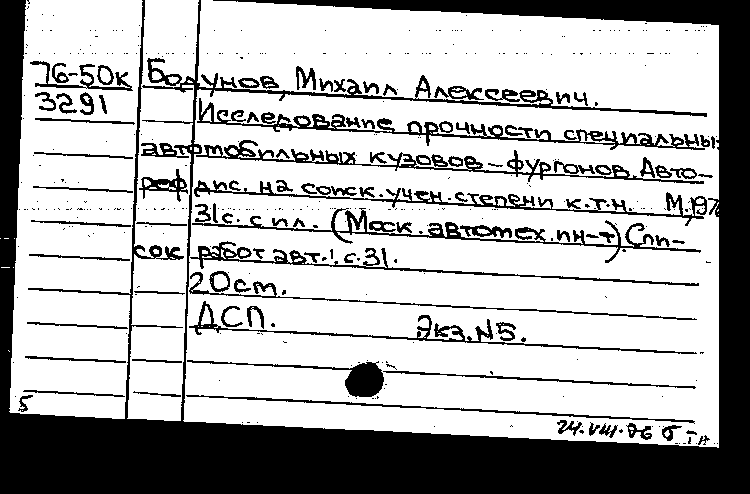 76-50к Бодунов, Михаил Алексеевич.
3291 Исследование прочности специальны
автомобильных кузовов-фургонов. Авто-
реф дис. на соиск. учен. степени к.т.н. М., 1976
31с. с ил. (Моск. автомех. ин-т). Спи-
сок работ авт.: с. 31.
20см.
ДСП. Экз. №5.
5
24.VIII.76